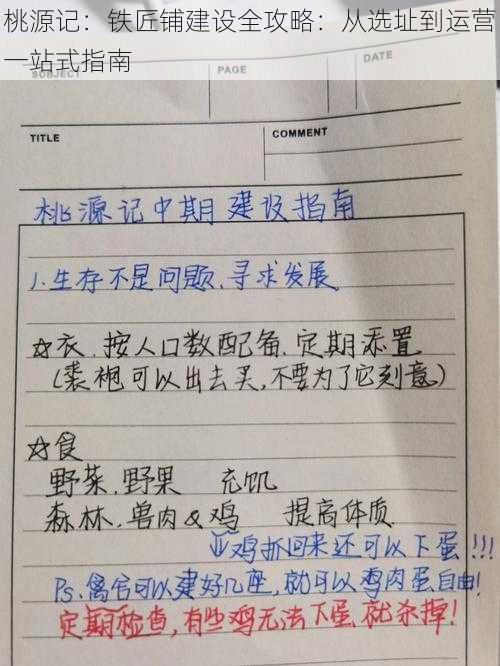 桃源记：铁匠铺建设全攻略：从选址到运营
一站式指南
SUBJECT
PAGE
DATE
TITLE
COMMENT
桃源记中期建设指南
1.生存不是问题,寻求发展.
☆衣.按人口数配备.定期添置.
(裘袍可以出去买,不要为了它刻意)
☆食
野菜.野果 充饥
森林.兽肉&鸡 提高体质.
鸡抓回来还可以下蛋!!!
Ps.禽舍可以建好几座,就可以鸡肉蛋自由!
定期检查,有些鸡无法下蛋.就杀掉!